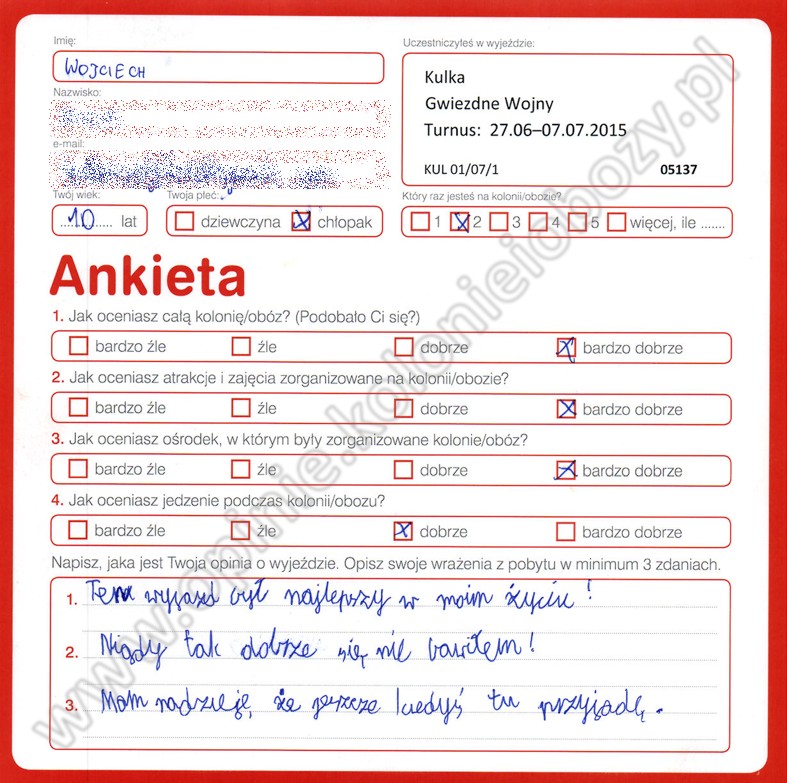 Imię:
WOJCIECH
Nazwisko:
e-mail:
Twój wiek:
10 lat
Twoja płeć:
dziewczyna chłopak
Uczestniczyłeś w wyjeździe:
Kulka
Gwiezdne Wojny
Turnus: 27.06–07.07.2015
KUL 01/07/1 05137
Który raz jesteś na kolonii/obozie?
1 2 3 4 5 więcej, ile .......
Ankieta
1. Jak oceniasz całą kolonię/obóz? (Podobało Ci się?)
bardzo źle źle dobrze bardzo dobrze
2. Jak oceniasz atrakcje i zajęcia zorganizowane na kolonii/obozie?
bardzo źle źle dobrze bardzo dobrze
3. Jak oceniasz ośrodek, w którym były zorganizowane kolonie/obóz?
bardzo źle źle dobrze bardzo dobrze
4. Jak oceniasz jedzenie podczas kolonii/obozu?
bardzo źle źle dobrze bardzo dobrze
Napisz, jaka jest Twoja opinia o wyjeździe. Opisz swoje wrażenia z pobytu w minimum 3 zdaniach.
1. Ten wyjazd był najlepszy w moim życiu!
2. Nigdy tak dobrze się nie bawiłem!
3. Mam nadzieję, że jeszcze kiedyś tu przyjadę.
www.opinie.kolonieiobozy.pl